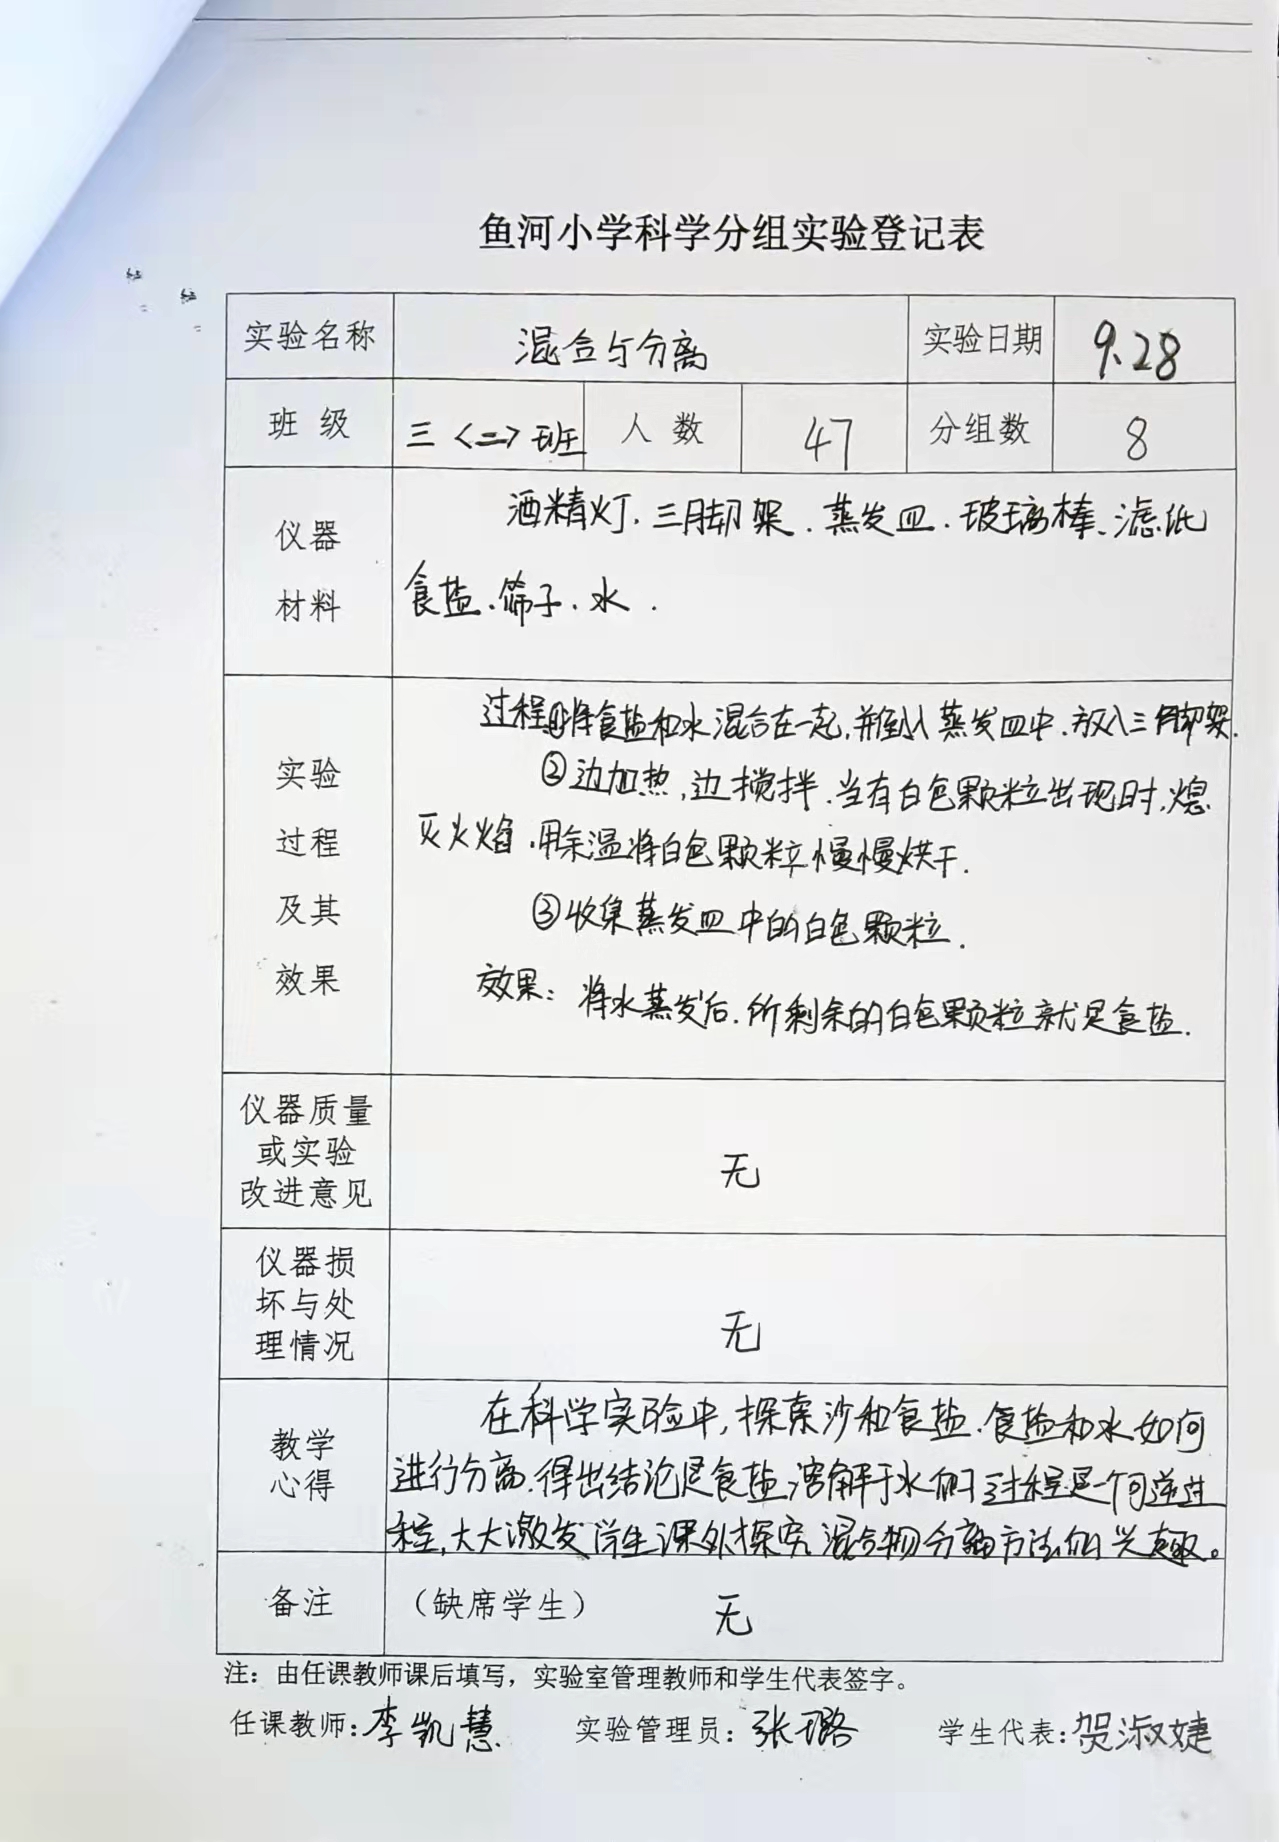 鱼河小学科学分组实验登记表
实验名称 混合与分离 实验日期 9.28
班 级 三<二>班 人 数 47 分组数 8
仪器
材料
酒精灯.三脚架.蒸发皿.玻璃棒、滤纸
食盐.筛子.水.
实验
过程
及其
效果
过程①将食盐和水混合在一起,并倒入蒸发皿中.放入三脚架.
②边加热,边搅拌.当有白色颗粒出现时,熄
灭火焰.用余温将白色颗粒慢慢烘干.
③收集蒸发皿中的白色颗粒.
效果:将水蒸发后.所剩余的白色颗粒就是食盐.
仪器质量
或实验
改进意见
无
仪器损
坏与处
理情况
无
教学
心得
在科学实验中,探索沙和食盐.食盐和水如何
进行分离.得出结论是食盐溶解于水的过程是一个可逆过
程,大大激发学生课外探究混合物分离方法的兴趣。
备注 (缺席学生) 无
注:由任课教师课后填写,实验室管理教师和学生代表签字。
任课教师:李凯慧 实验管理员:张璐 学生代表:贺淑婕